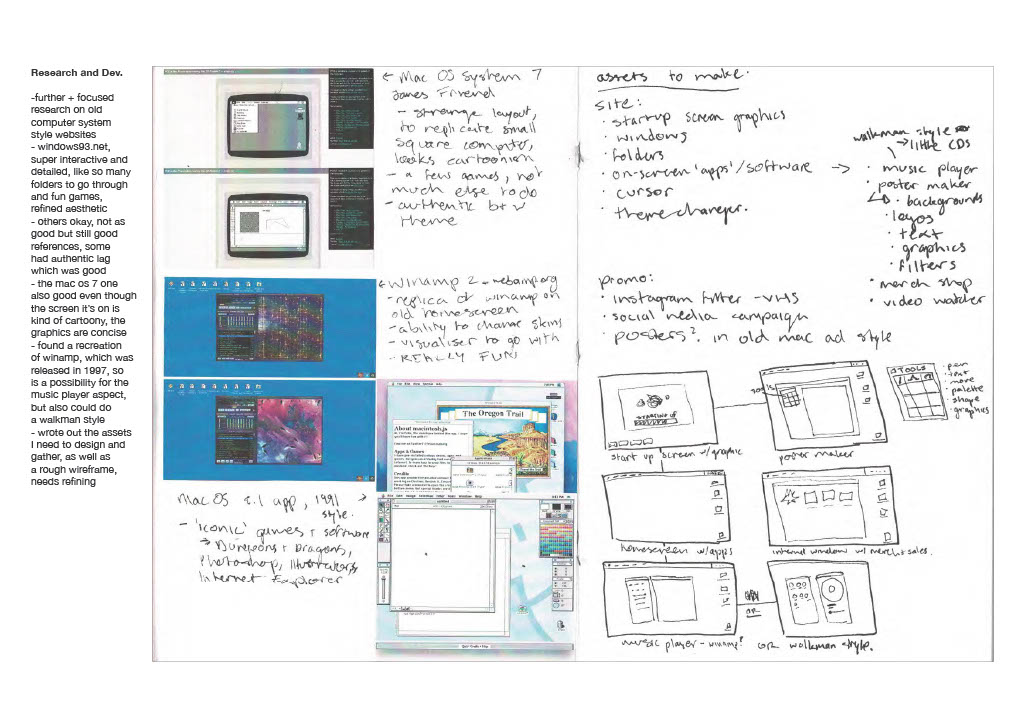 Research and Dev.
-further + focused
research on old
computer system
style websites
- windows93.net,
super interactive and
detailed, like so many
folders to go through
and fun games,
refined aesthetic
- others okay, not as
good but still good
references, some
had authentic lag
which was good
- the mac os 7 one
also good even though
the screen it's on is
kind of cartoony, the
graphics are concise
- found a recreation
of winamp, which was
released in 1997, so
is a possibility for the
music player aspect,
but also could do
a walkman style
- wrote out the assets
I need to design and
gather, as well as
a rough wireframe,
needs refining
← Mac OS System 7
James Friend
- strange layout,
to replicate small
square computer,
looks cartoonish
- a few games, not
much else to do
- authentic b+w
theme
← Winamp 2 - webamp.org
- replica of winamp on
old homescreen
- ability to change skins
- visualiser to go with
- REALLY FUN!
The Oregon Trail
About macintosh.js
Apps & Games
Credits
Mac OS 8.1 app, 1991 →
style.
- 'iconic' games + software
→ Dungeons + Dragons,
Photoshop, Illustrator,
Internet Explorer
assets to make:
site:
· startup screen graphics
· windows
· folders
· on-screen 'apps'/software →
· cursor
· theme changer.
walkman style
→ little CDs
· music player
· poster maker
· backgrounds
· logos
· text
· graphics
· filters
· merch shop
· video watcher
promo:
· instagram filter - VHS
· social media campaign
· posters? in old mac ad style
STARTING UP
start up screen w/graphic
TOOLS
· pen
· text
· move
· palette
· shape
· graphics
poster maker
homescreen w/apps
internal window w/ merch + sales.
OR
music player - winamp? OR walkman style.